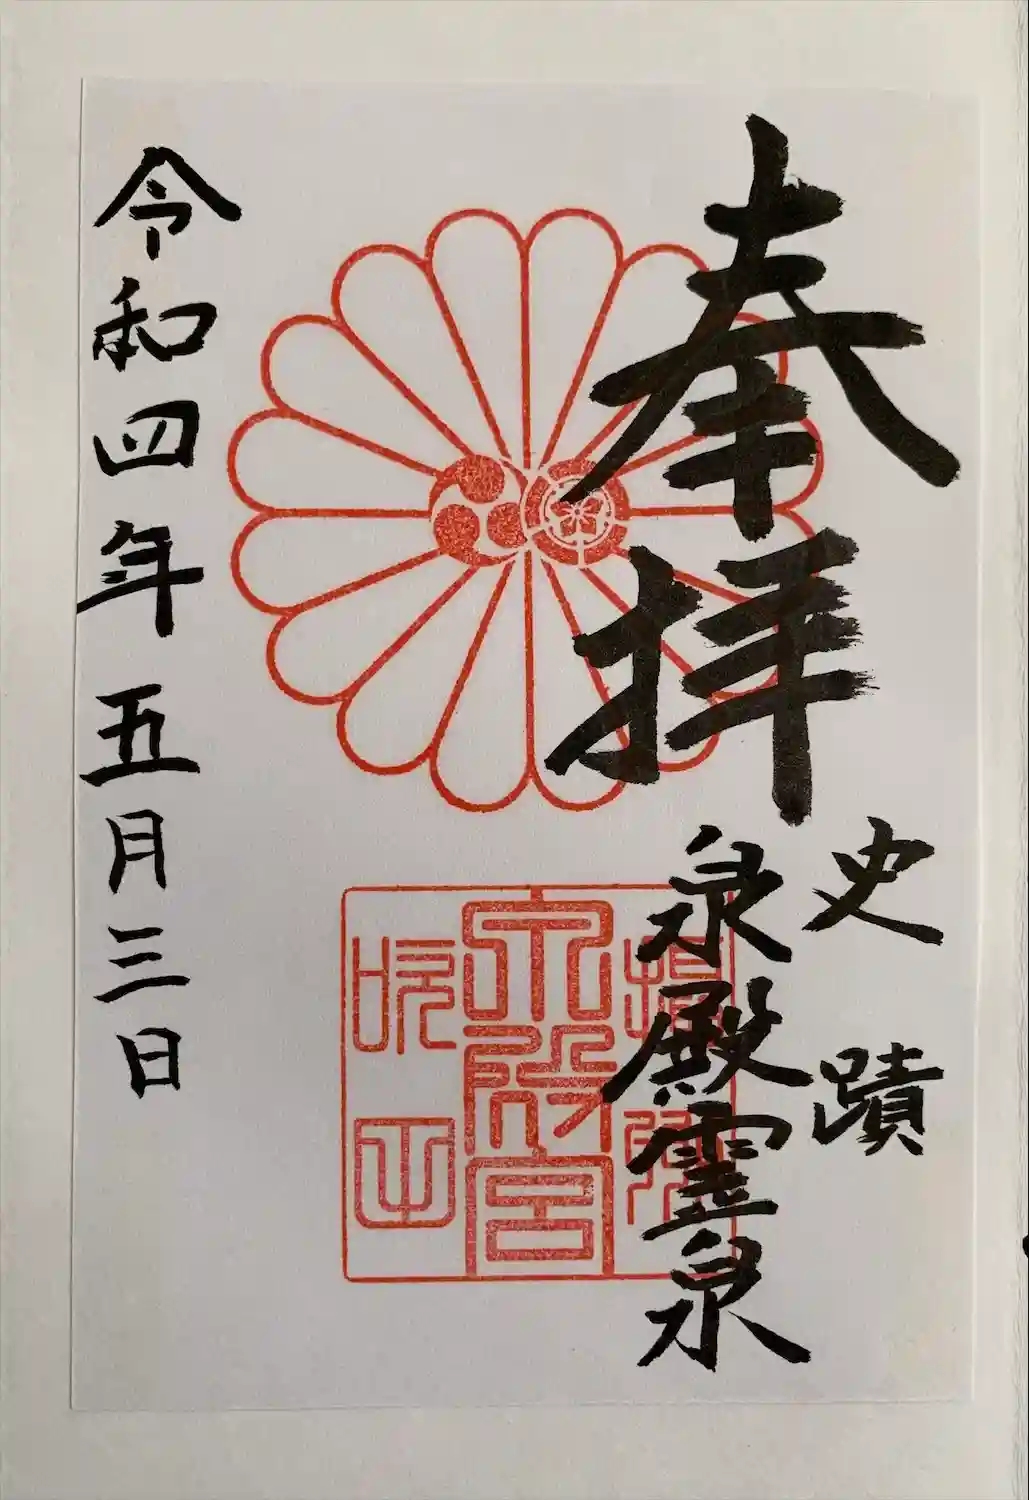 奉拝
史蹟
泉殿霊泉
令和四年五月三日